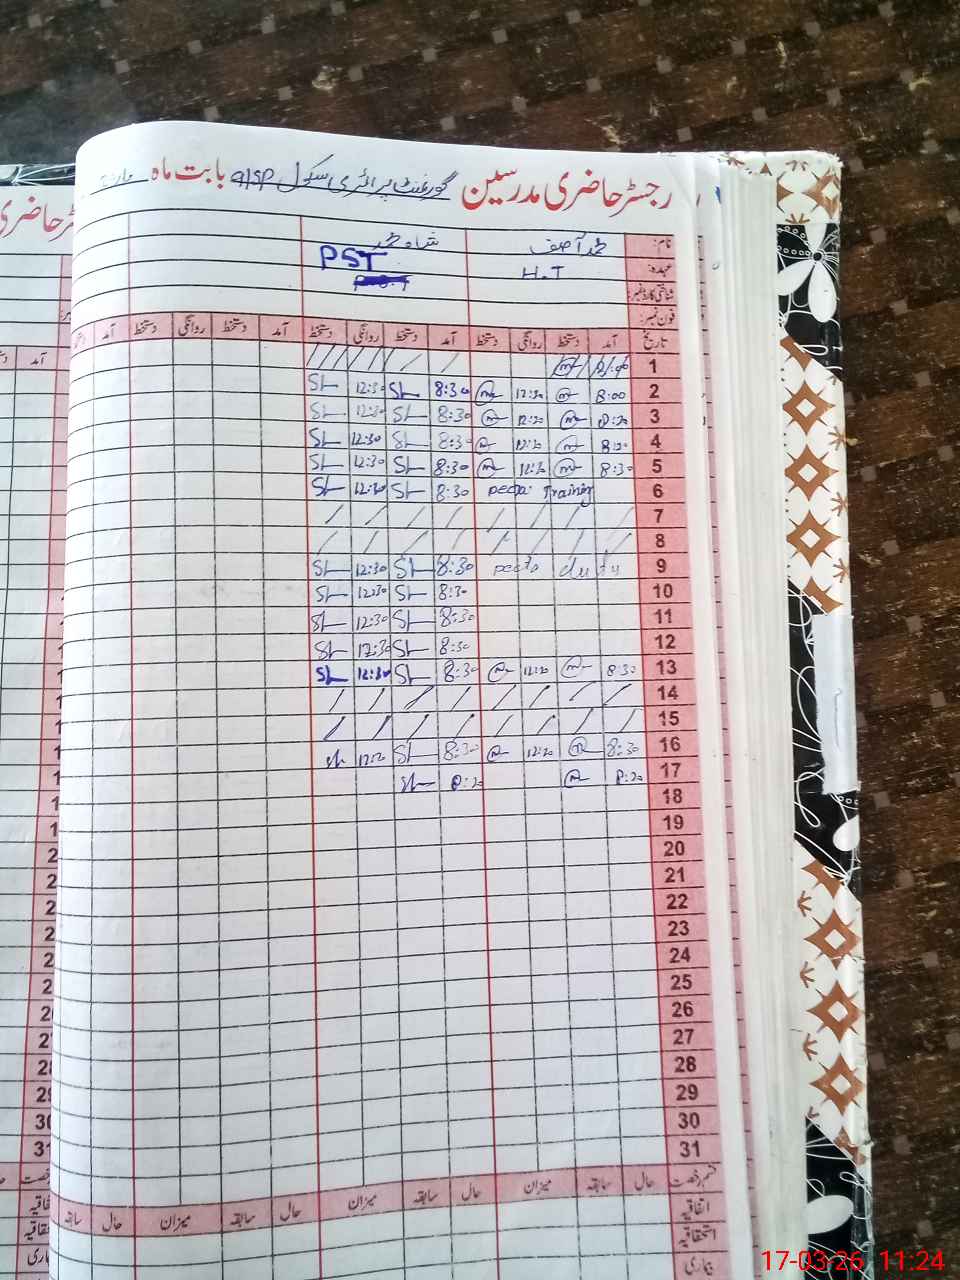 رجسٹر حاضری مدرسین گورنمنٹ پرائمری سکول 91SP بابت ماہ مارچ
نام: محمد آصف شاہ محمد
عہدہ: H.T PST
شناختی کارڈ نمبر:
فون نمبر:
تاریخ آمد دستخط روانگی دستخط آمد دستخط روانگی دستخط آمد دستخط روانگی دستخط آمد
1
2 8:00 12:30 8:30 SL 12:30 SL
3 8:30 SL 12:30 SL
4 8:30 SL 12:30 SL
5 8:30 12:30 8:30 SL 12:30 SL
6 pecta Training 8:30 SL 12:30 SL
7
8
9 pecta duty 8:30 SL 12:30 SL
10 8:30 SL 12:30 SL
11 8:30 SL 12:30 SL
12 8:30 SL 12:30 SL
13 8:30 12:30 8:30 SL 12:30 SL
14
15
16 8:30 12:30 8:30 SL 12:30
17
18
19
20
21
22
23
24
25
26
27
28
29
30
31
قسم رخصت حال سابقہ میزان حال سابقہ میزان حال سابقہ میزان حال سابقہ
اتفاقیہ
استحقاقیہ
بیماری
17-03-26 11:24